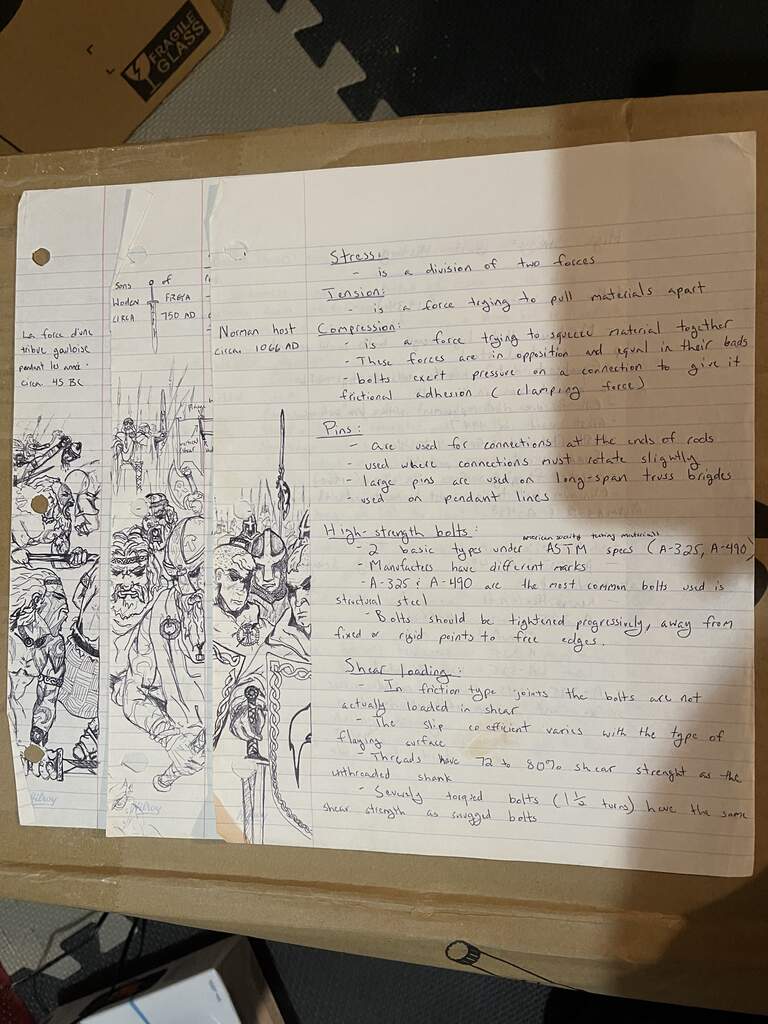 FRAGILE
GLASS
La force d'une
tribue gauloise
pendant les anné.
Circa. 45 BC
Sons of
Woden FREYA
CIRCA 750 AD
Norman host
Circa. 1066 AD
Stress:
- is a division of two forces
Tension:
- is a force trying to pull materials apart
Compression:
- is a force trying to squeeze material together
- These forces are in opposition and equal in their bads
- bolts exert pressure on a connection to give it
frictional adhesion (clamping force)
Pins:
- are used for connections at the ends of rods
- used where connections must rotate slightly
- large pins are used on long-span truss brigdes
- used on pendant lines
High-strength bolts:
american society testing materials
- 2 basic types under ASTM specs (A-325, A-490)
- Manufacters have different marks
- A-325 & A-490 are the most common bolts used is
structural steel
- Bolts should be tightened progressively, away from
fixed or rigid points to free edges.
Shear loading:
- In friction type joints the bolts are not
actually loaded in shear
- The slip coefficient varies with the type of
flaying surface
- Threads have 72 to 80% shear strenght as the
unthreaded shank
- Severely torqued bolts (1 1/2 turns) have the same
shear strength as snugged bolts
Hilroy